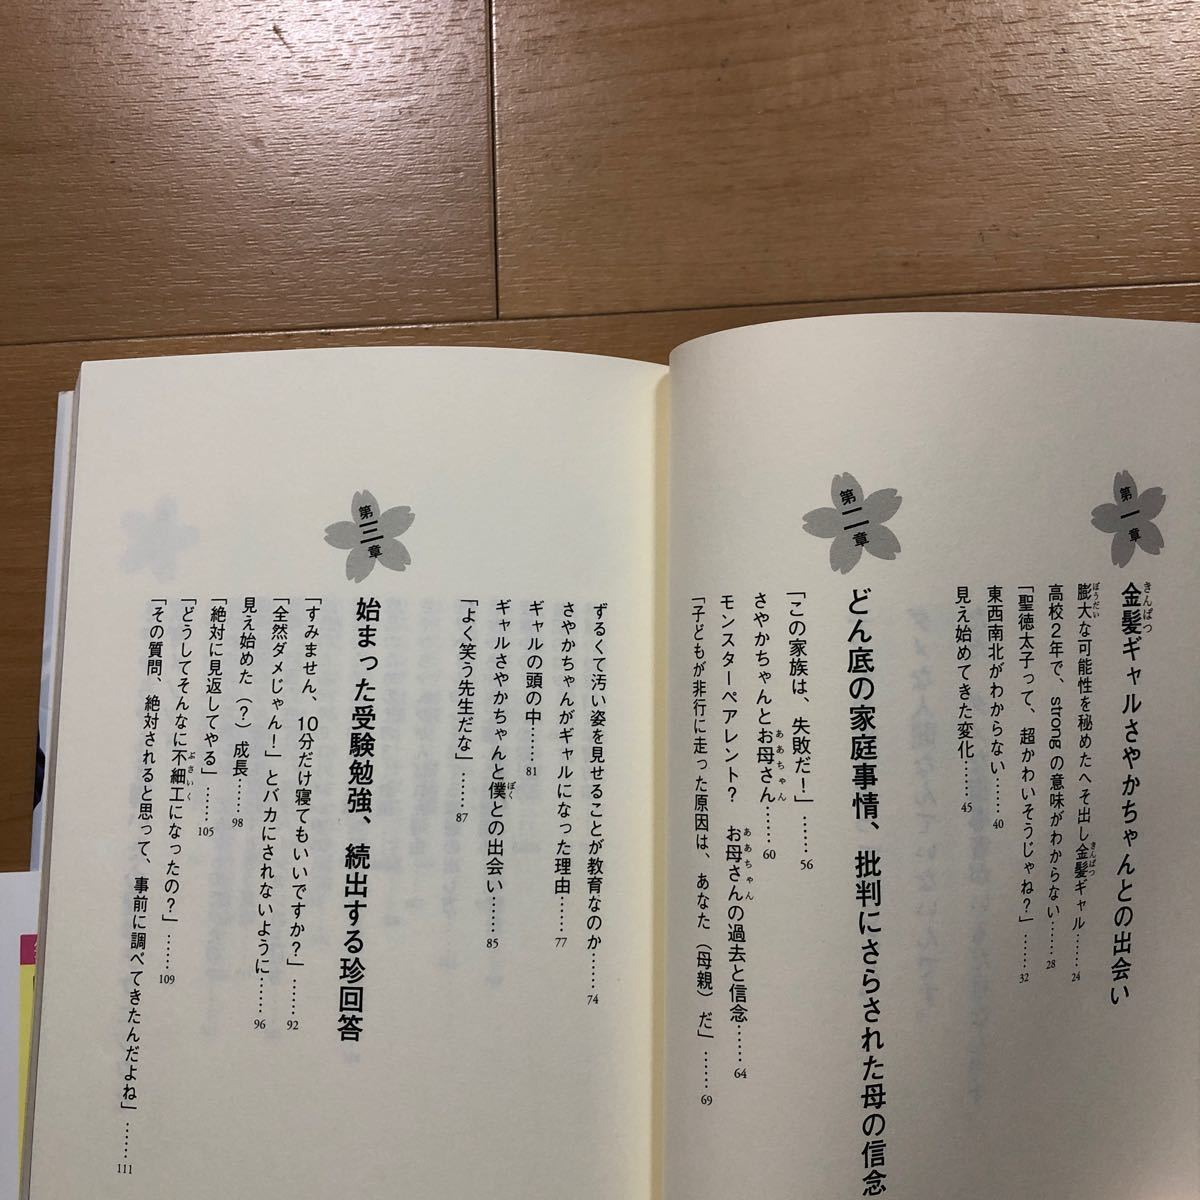 第一章
金髪ギャルさやかちゃんとの出会い
きんぱつ
膨大な可能性を秘めたへそ出し金髪ギャル……24
ぼうだい
きんぱつ
高校2年で、strongの意味がわからない……28
「聖徳太子って、超かわいそうじゃね?」……32
東西南北がわからない……40
見え始めてきた変化……45
第二章
どん底の家庭事情、批判にさらされた母の信念
「この家族は、失敗だ!」……56
さやかちゃんとお母さん……60
ああちゃん
モンスターペアレント? お母さんの過去と信念……64
ああちゃん
「子どもが非行に走った原因は、あなた(母親)だ」……69
ずるくて汚い姿を見せることが教育なのか……74
さやかちゃんがギャルになった理由……77
ギャルの頭の中……81
ギャルさやかちゃんと僕との出会い……85
ぼく
「よく笑う先生だな」……87
第三章
始まった受験勉強、続出する珍回答
「すみません、10分だけ寝てもいいですか?」……92
「全然ダメじゃん!」とバカにされないように……96
見え始めた(?)成長……98
「絶対に見返してやる」……105
「どうしてそんなに不細工になったの?」……109
ぶさいく
「その質問、絶対されると思って、事前に調べてきたんだよね」……111